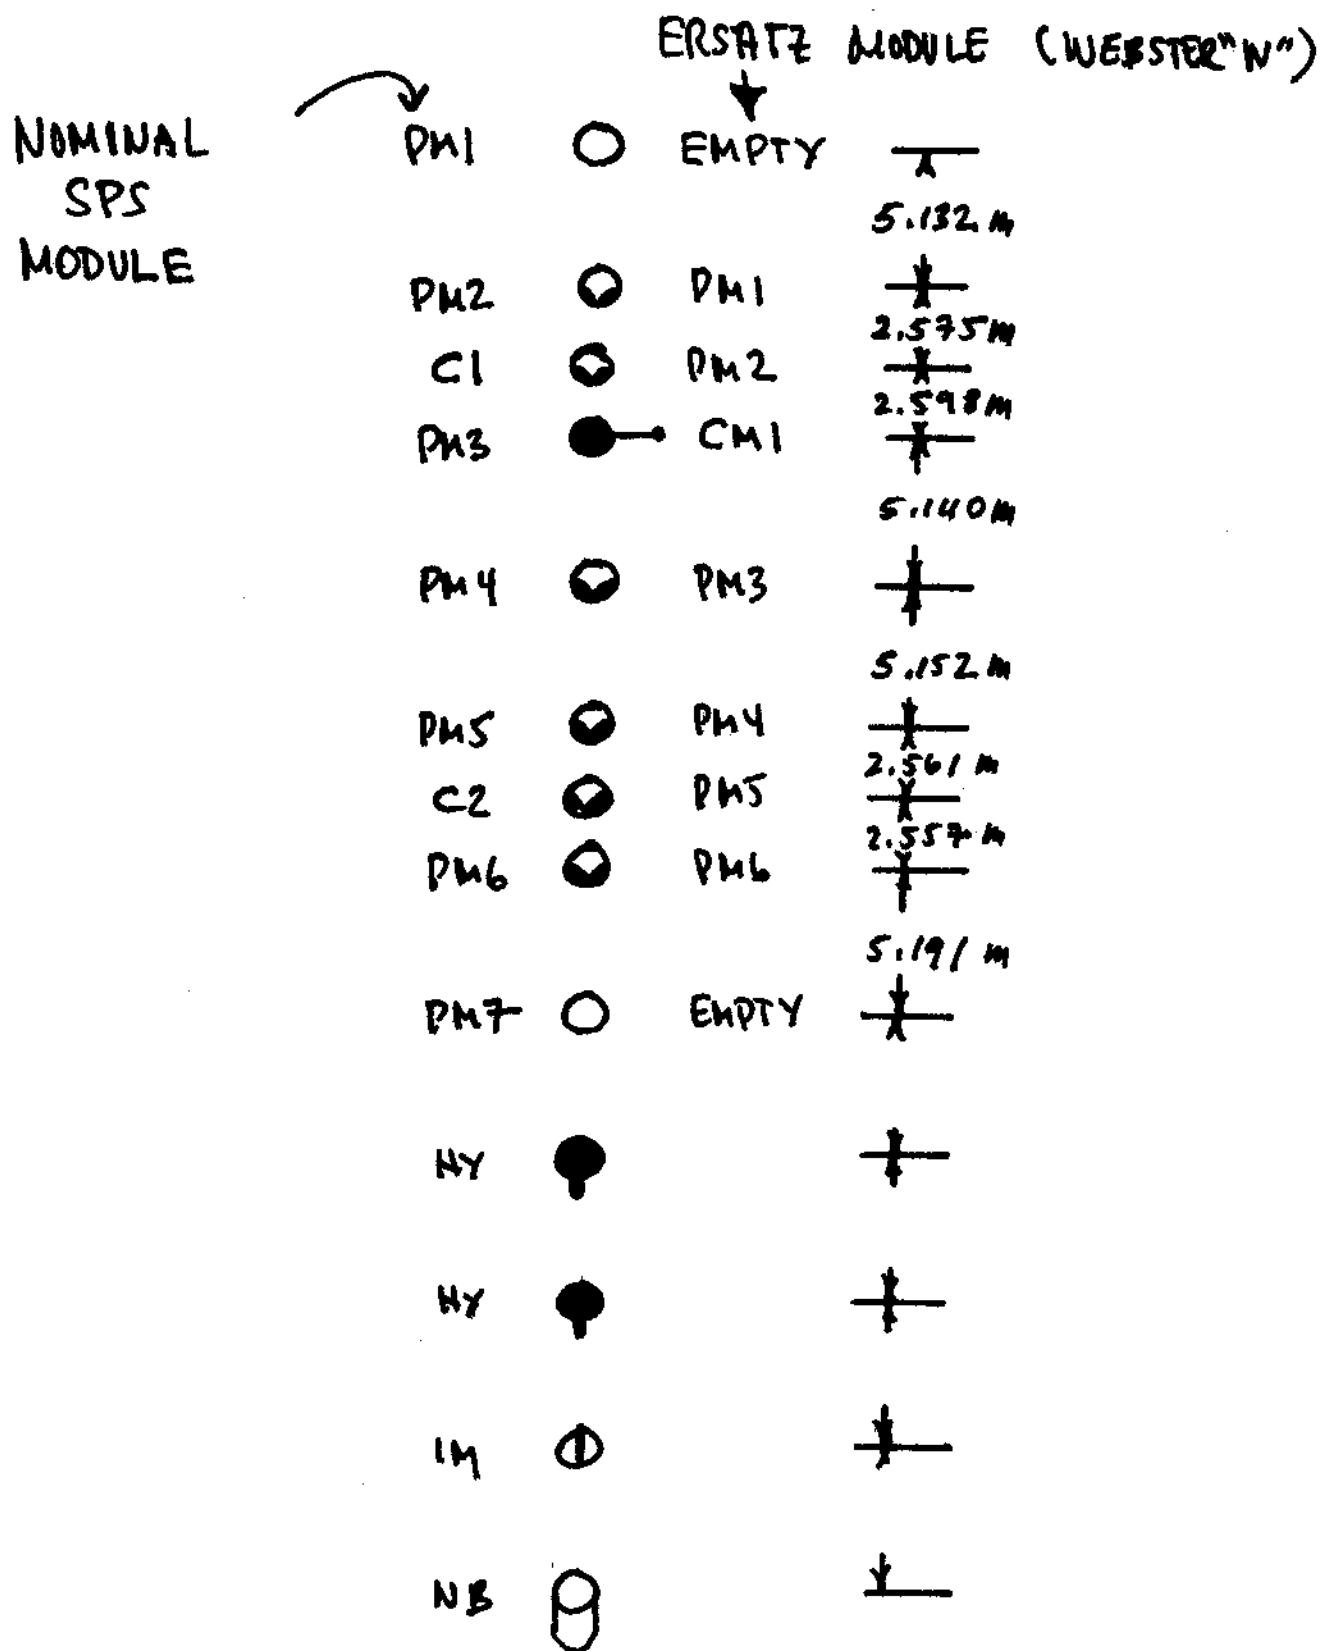 ERSATZ MODULE (WEBSTER "N")
NOMINAL
SPS
MODULE
PM1 EMPTY
5.132 m
PM2 PM1
2.575 m
C1 PM2
2.598 m
PM3 CM1
5.140 m
PM4 PM3
5.152 m
PM5 PM4
2.561 m
C2 PM5
2.557 m
PM6 PM6
5.191 m
PM7 EMPTY
HY
HY
IM
NB